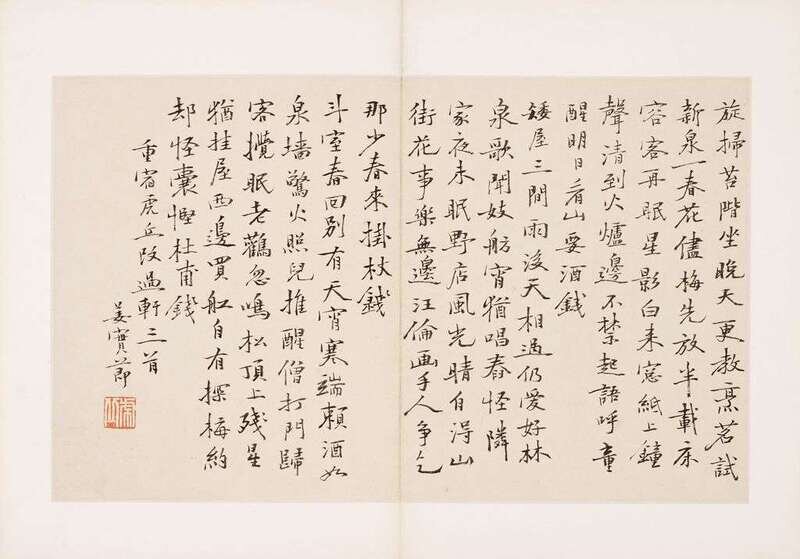 旋掃苔階坐晚天更教烹茗試
新泉一春花儘梅先放半載床
容客再眠星影白來窓紙上鐘
聲清到火爐邊不禁起語呼童
醒明日看山要酒錢
矮屋三間雨後天相過仍愛好林
泉歌聞妓舫宵猶唱舂怪隣
家夜未眠野店風光晴自得山
街花事樂無邊汪倫画手人争乞
那少春來掛杖錢
斗室春回別有天宵寒端賴酒如
泉墻驚火照兒推醒僧打門歸
客攪眠老鸛忽鳴松頂上殘星
猶挂屋西邊買舡自有探梅約
却怪囊慳杜甫錢
重宿虎丘改過軒三首
姜實節